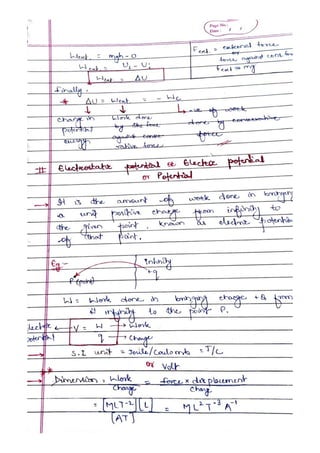 Page No.:
Date: / /
Wext. = mgh - 0
Fext. = external force
or
force against cons. force
Wext. = Uf - Ui
Fext = mg
Wext = ΔU
finally,
* ΔU = Wext = - Wc
change in potential energy
Work done by the force against conservative force.
-ve of work done by conservative force
# Electrostatic potential or Electric potential
or Potential
→ It is the amount of work done in bringing
a unit positive charge from infinity to
the given point, known as electric potential
of that point.
Eg -
infinity
+q
P (point)
W = Work done in bringing charge +q from
infinity to the point P.
Electric potential ← V = W/q → Work
→ Charge
→ S.I. unit = Joule/Coulombs = J/C
or Volt
* Dimension, Work/Charge = force × displacement/Charge
= [MLT-2][L]/[AT] = ML2T-3A-1